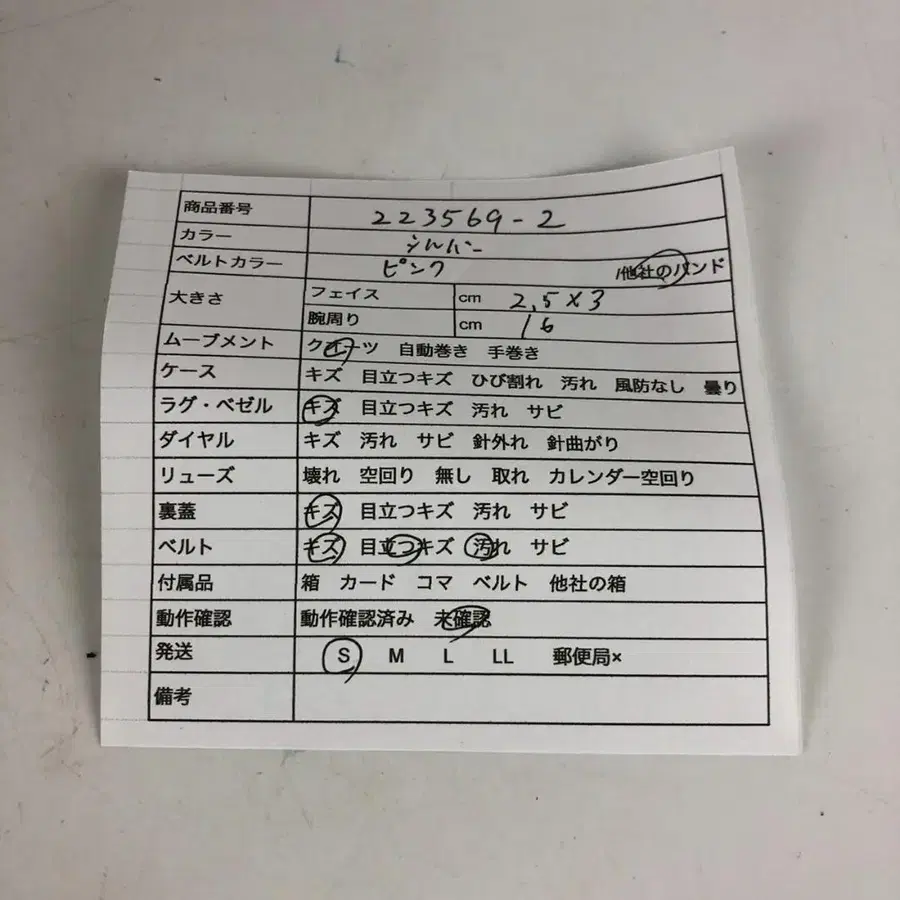 商品番号 223569-2
カラー シルバー
ベルトカラー ピンク 他社のバンド
大きさ フェイス cm 2,5×3
腕周り cm 16
ムーブメント クォーツ 自動巻き 手巻き
ケース キズ 目立つキズ ひび割れ 汚れ 風防なし 曇り
ラグ・ベゼル キズ 目立つキズ 汚れ サビ
ダイヤル キズ 汚れ サビ 針外れ 針曲がり
リューズ 壊れ 空回り 無し 取れ カレンダー空回り
裏蓋 キズ 目立つキズ 汚れ サビ
ベルト キズ 目立つキズ 汚れ サビ
付属品 箱 カード コマ ベルト 他社の箱
動作確認 動作確認済み 未確認
発送 S M L LL 郵便局×
備考